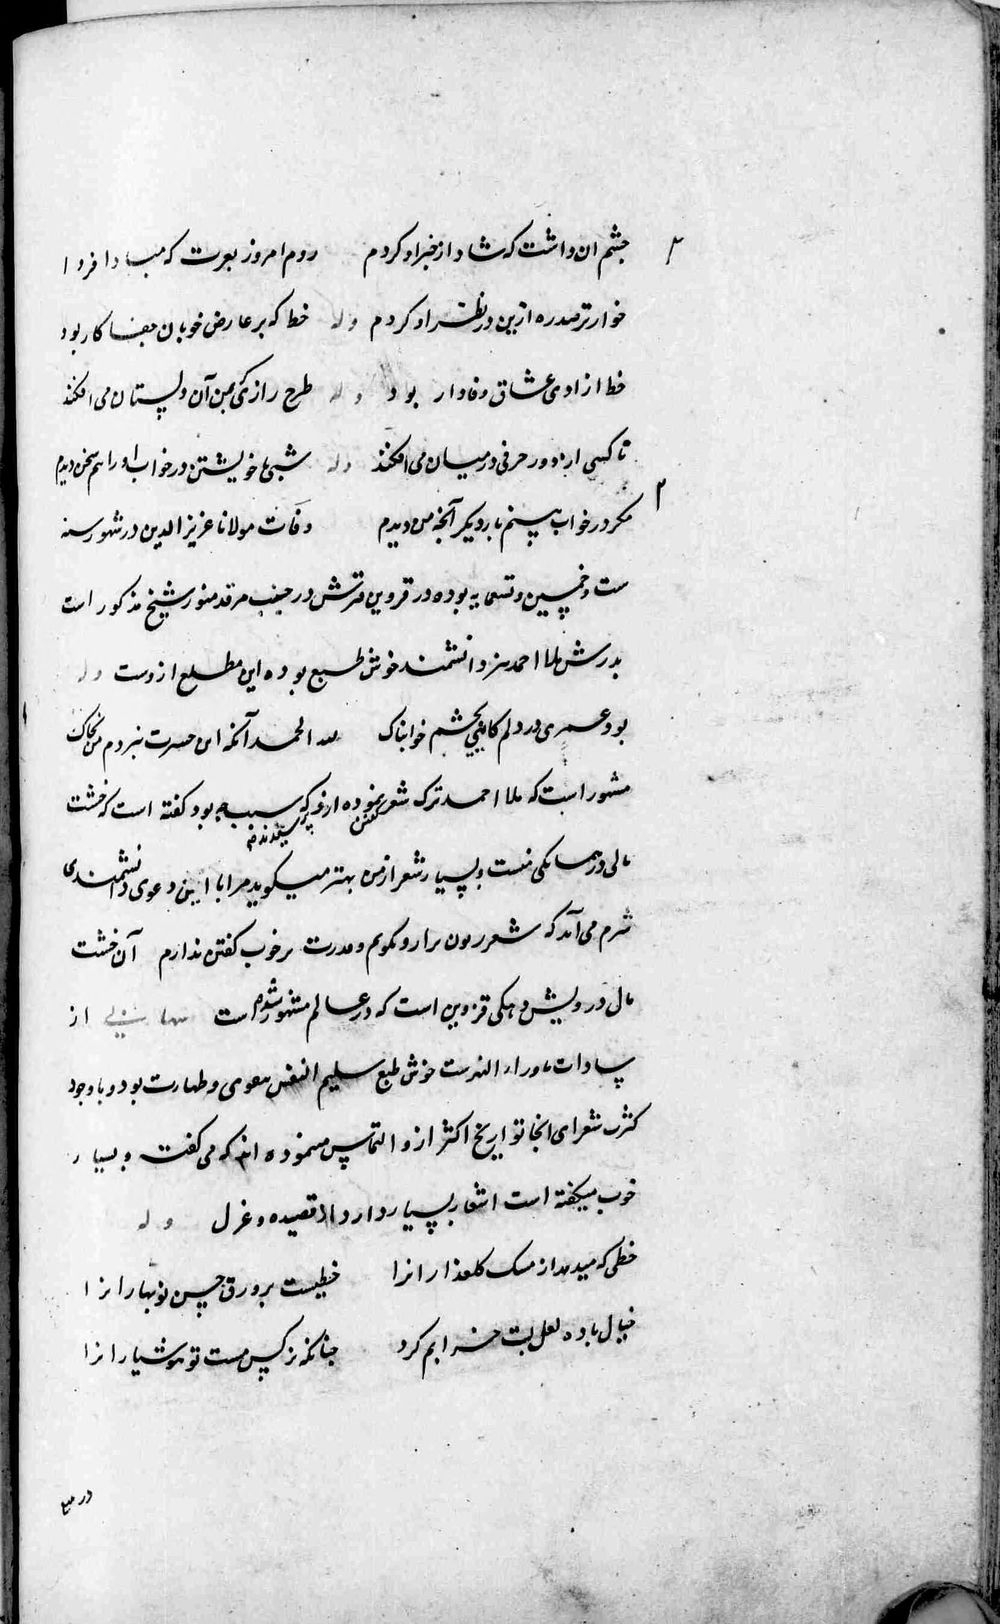 چشم ان داشت که شاد از خبر او کردم روم امروز بعرت که مبادا فردا
خوارتر صد ره ازین در نظر او کردم وله خط که بر عارض خوبان جفا کار بود
خط ازادی عشاق وفادار بود وله طرح راز کی بمن آن دلستان می افکند
تا کسی از دور حرفی در میان می افکند وله شبی با خویشتن در خواب او را هم سخن دیدم
مکر در خواب بینم بار دیکر آنچه من دیدم وفات مولانا عزیز الدین در شهور سنه
ست و خمسین و تسعمایه بوده در قزوین قبرش در جنب مرقد منور شیخ مذکور است
پدرش ملا احمد مرد دانشمند خوش طبع بوده این مطلع ازوست وله
بود عمری در دلم کان چشم خوابناک لله الحمد آنکه این حسرت نبردم من بخاک
مشهور است که ملا احمد ترک شعر گفتن نموده ازو پرسیدند که سبب چه بود کفته است که خشت
مالی در همسایکی منست و بسیار شعر از من بهتر میکوید مرا با این دعوی دانشمندی
شرم می آید که شعر زبون برا رو بکویم و قدرت بر خوب کفتن ندارم آن خشت
مال درویش دهکی قزوین است که در عالم مشهور شده است از
سادات ماوراء النهرست خوش طبع سلیم النفس بتقوی و طهارت بود و با وجود
کثرت شعرای انجا تواریخ اکثر ازو التماس مینموده اند که می کفت و بسیار
خوب میکفته است اشعار بسیار دارد از قصیده و غزل وله
خطی که میدمد از مشک کلعذار انرا خطیست بر ورق حسن نوبهار انرا
خیال باده لعل لبت خرابم کرد چنانکه نرکس مست تو هوشیار انرا